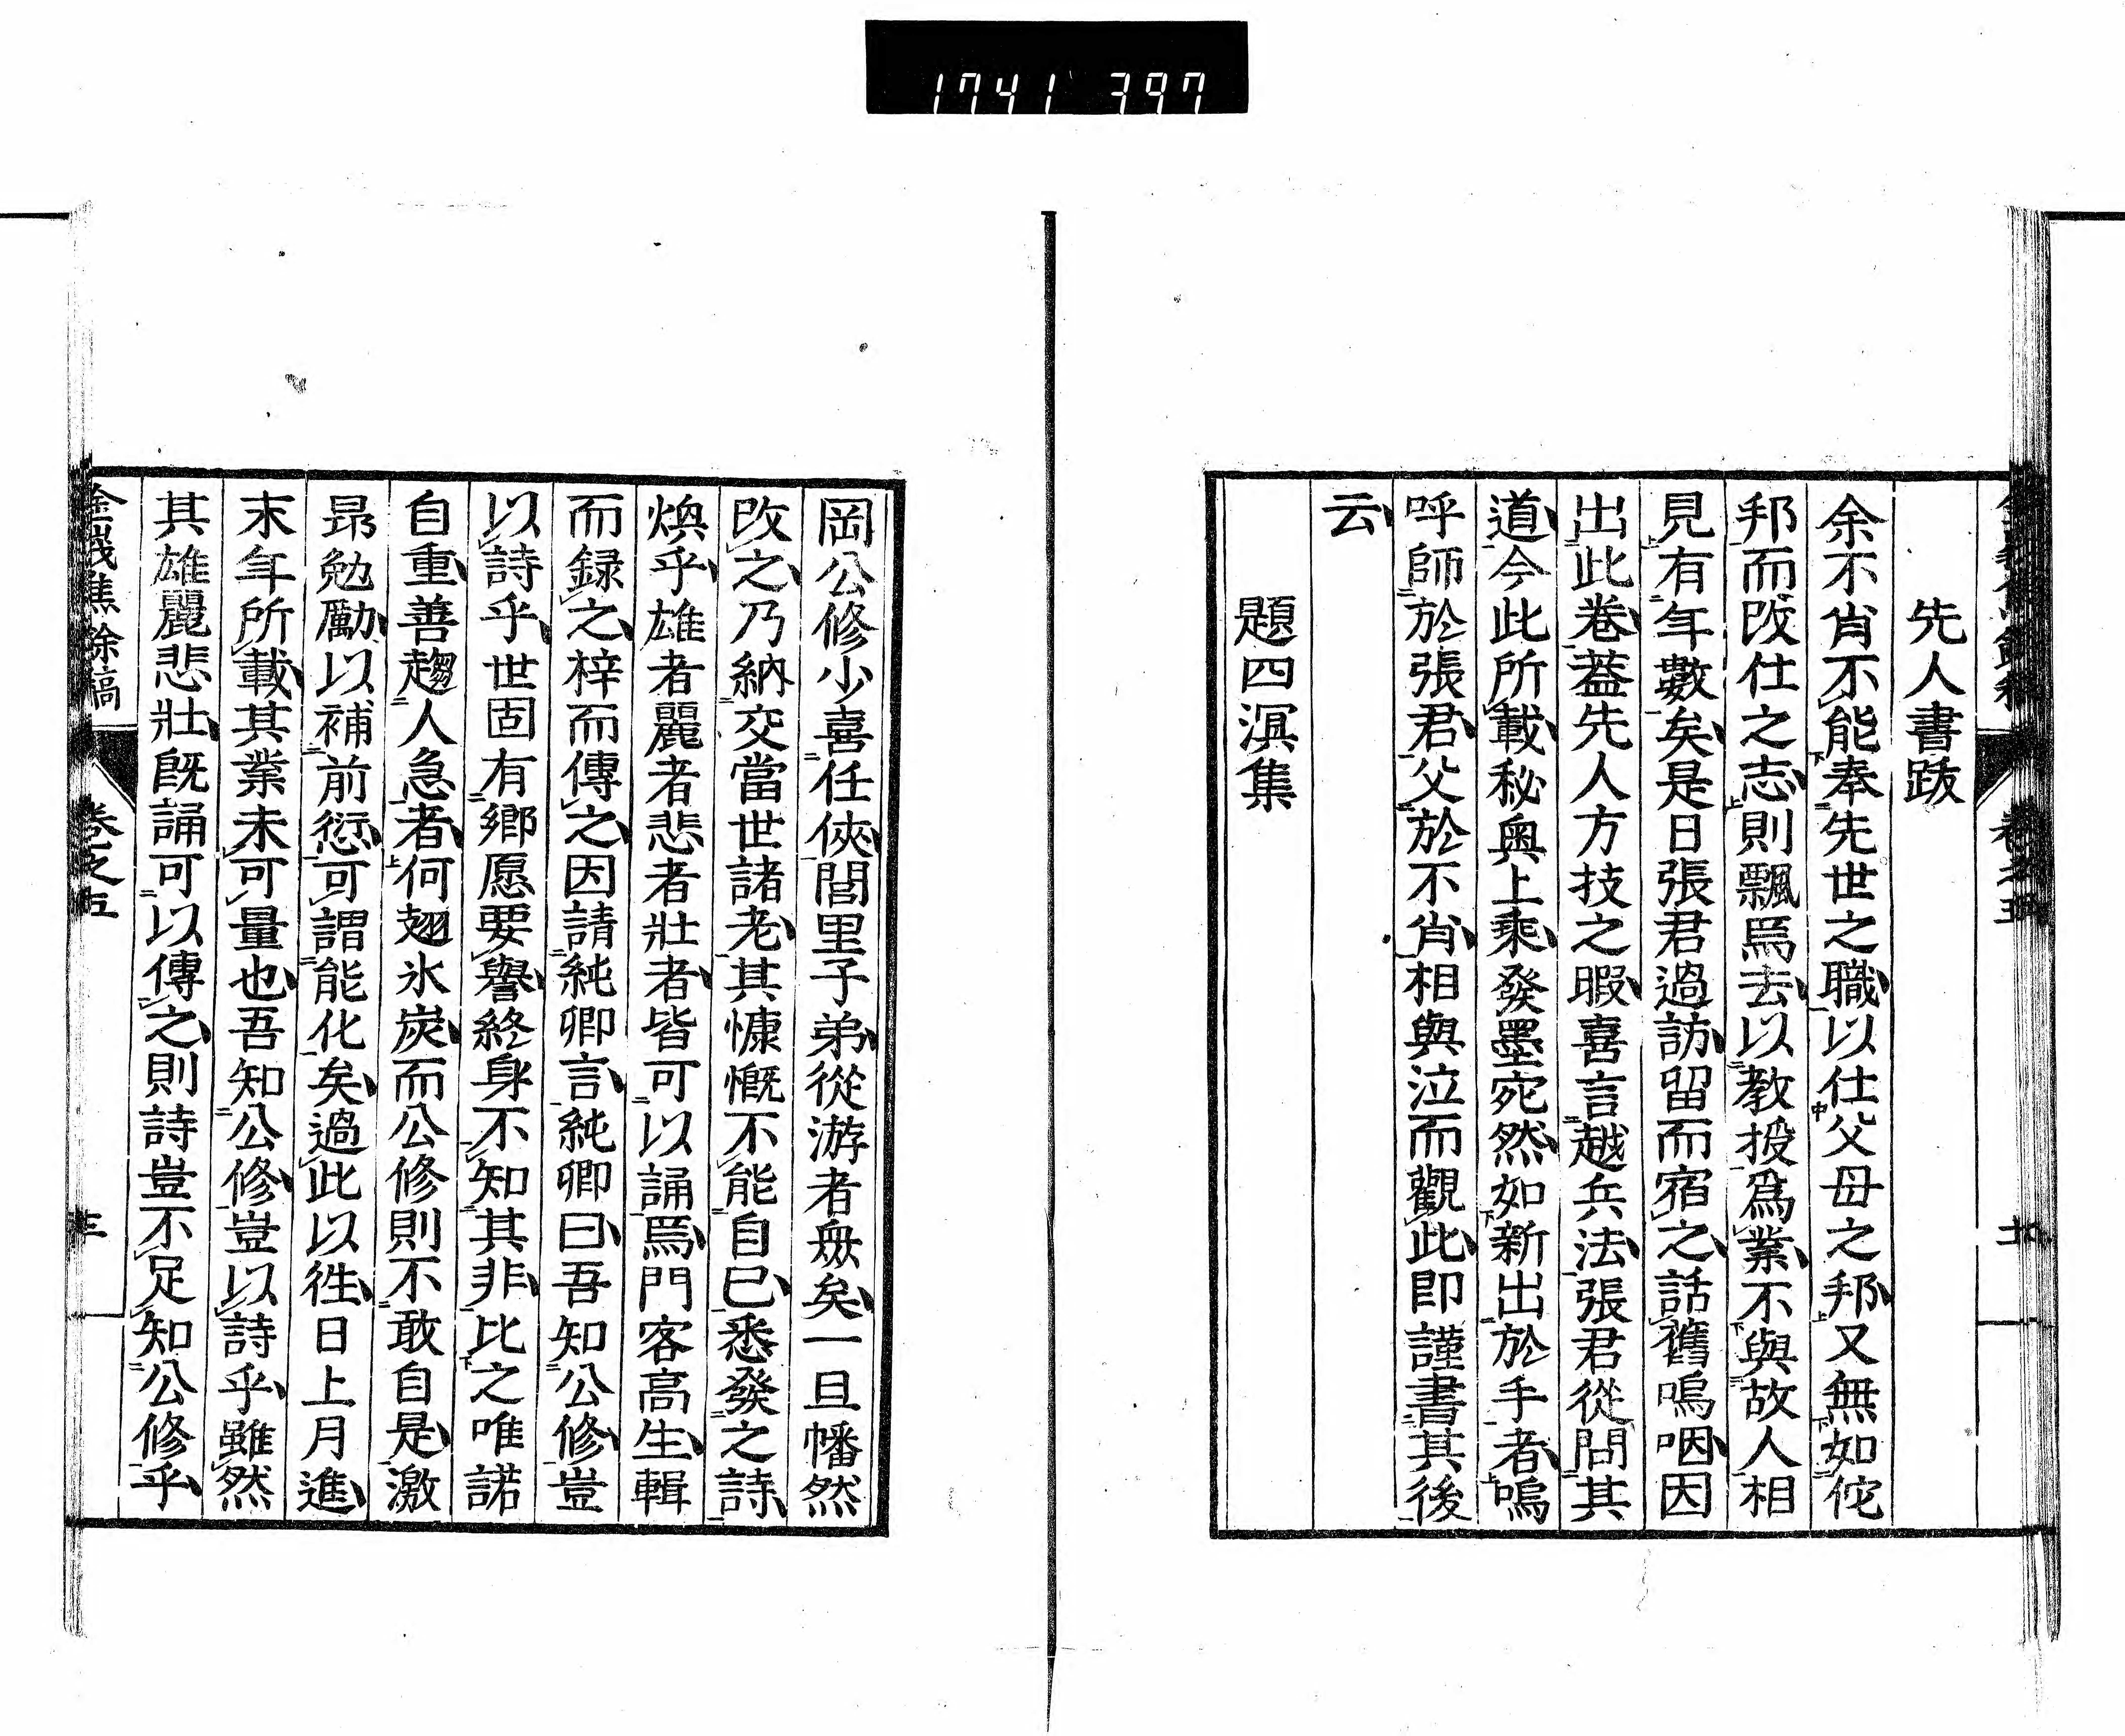 1741 397
先人書跋
余不肖不能奉先世之職以仕父母之邦又無如佗
邦而改仕之志則飄焉去以教授爲業不與故人相
見有年數矣是日張君過訪留而宿之話舊嗚咽因
出此卷蓋先人方技之暇喜言越兵法張君從問其
道今此所載秘奧上乘發墨宛然如新出於手者嗚
呼師於張君父於不肖相與泣而觀此即謹書其後
云
題四溟集
岡公修少喜任俠閭里子弟從游者衆矣一旦幡然
改之乃納交當世諸老其慷慨不能自已悉發之詩
煥乎雄者麗者悲者壯者皆可以誦焉門客高生輯
而録之梓而傳之因請純卿言純卿曰吾知公修豈
以詩乎世固有鄉愿要譽終身不知其非比之唯諾
自重善趨人急者何翅氷炭而公修則不敢自是激
昂勉勵以補前愆可謂能化矣過此以徃日上月進
末年所載其業未可量也吾知公修豈以詩乎雖然
其雄麗悲壯既誦可以傳之則詩豈不足知公修乎
卷之五